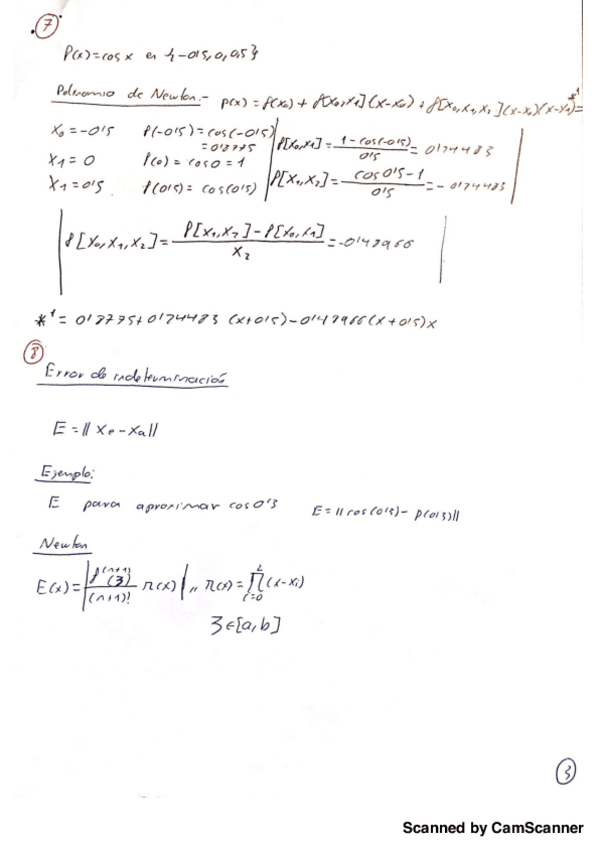 7
f(x) = cos x en {-0'5, 0, 0,5}
Polinomio de Newton:- p(x) = f(x₀) + f[x₀,x₁](x-x₀) + f[x₀,x₁,x₂](x-x₀)(x-x₁) = *¹
x₀ = -0'5 f(-0'5) = cos(-0'5) = 0'8775 f[x₀,x₁] = (1 - cos(-0'5))/0'5 = 0'24483
x₁ = 0 f(0) = cos 0 = 1
x₁ = 0'5 f(0'5) = cos(0'5) f[x₁,x₂] = (cos 0'5 - 1)/0'5 = -0'24483
f[x₀,x₁,x₂] = (f[x₁,x₂] - f[x₀,x₁])/x₂ = -0'47966
*¹ = 0'8775 + 0'24483 (x+0'5) - 0'47966 (x+0'5)x
8
Error de indeterminación
E = || xe - xa ||
Ejemplo:
E para aproximar cos 0'3 E = || cos(0'3) - p(0'3) ||
Newton
E(x) = | f^(n+1)(ξ)/(n+1)! π(x) | ,, π(x) = ∏ i=0 2 (x-xi)
ξ ∈ [a,b]
3
Scanned by CamScanner